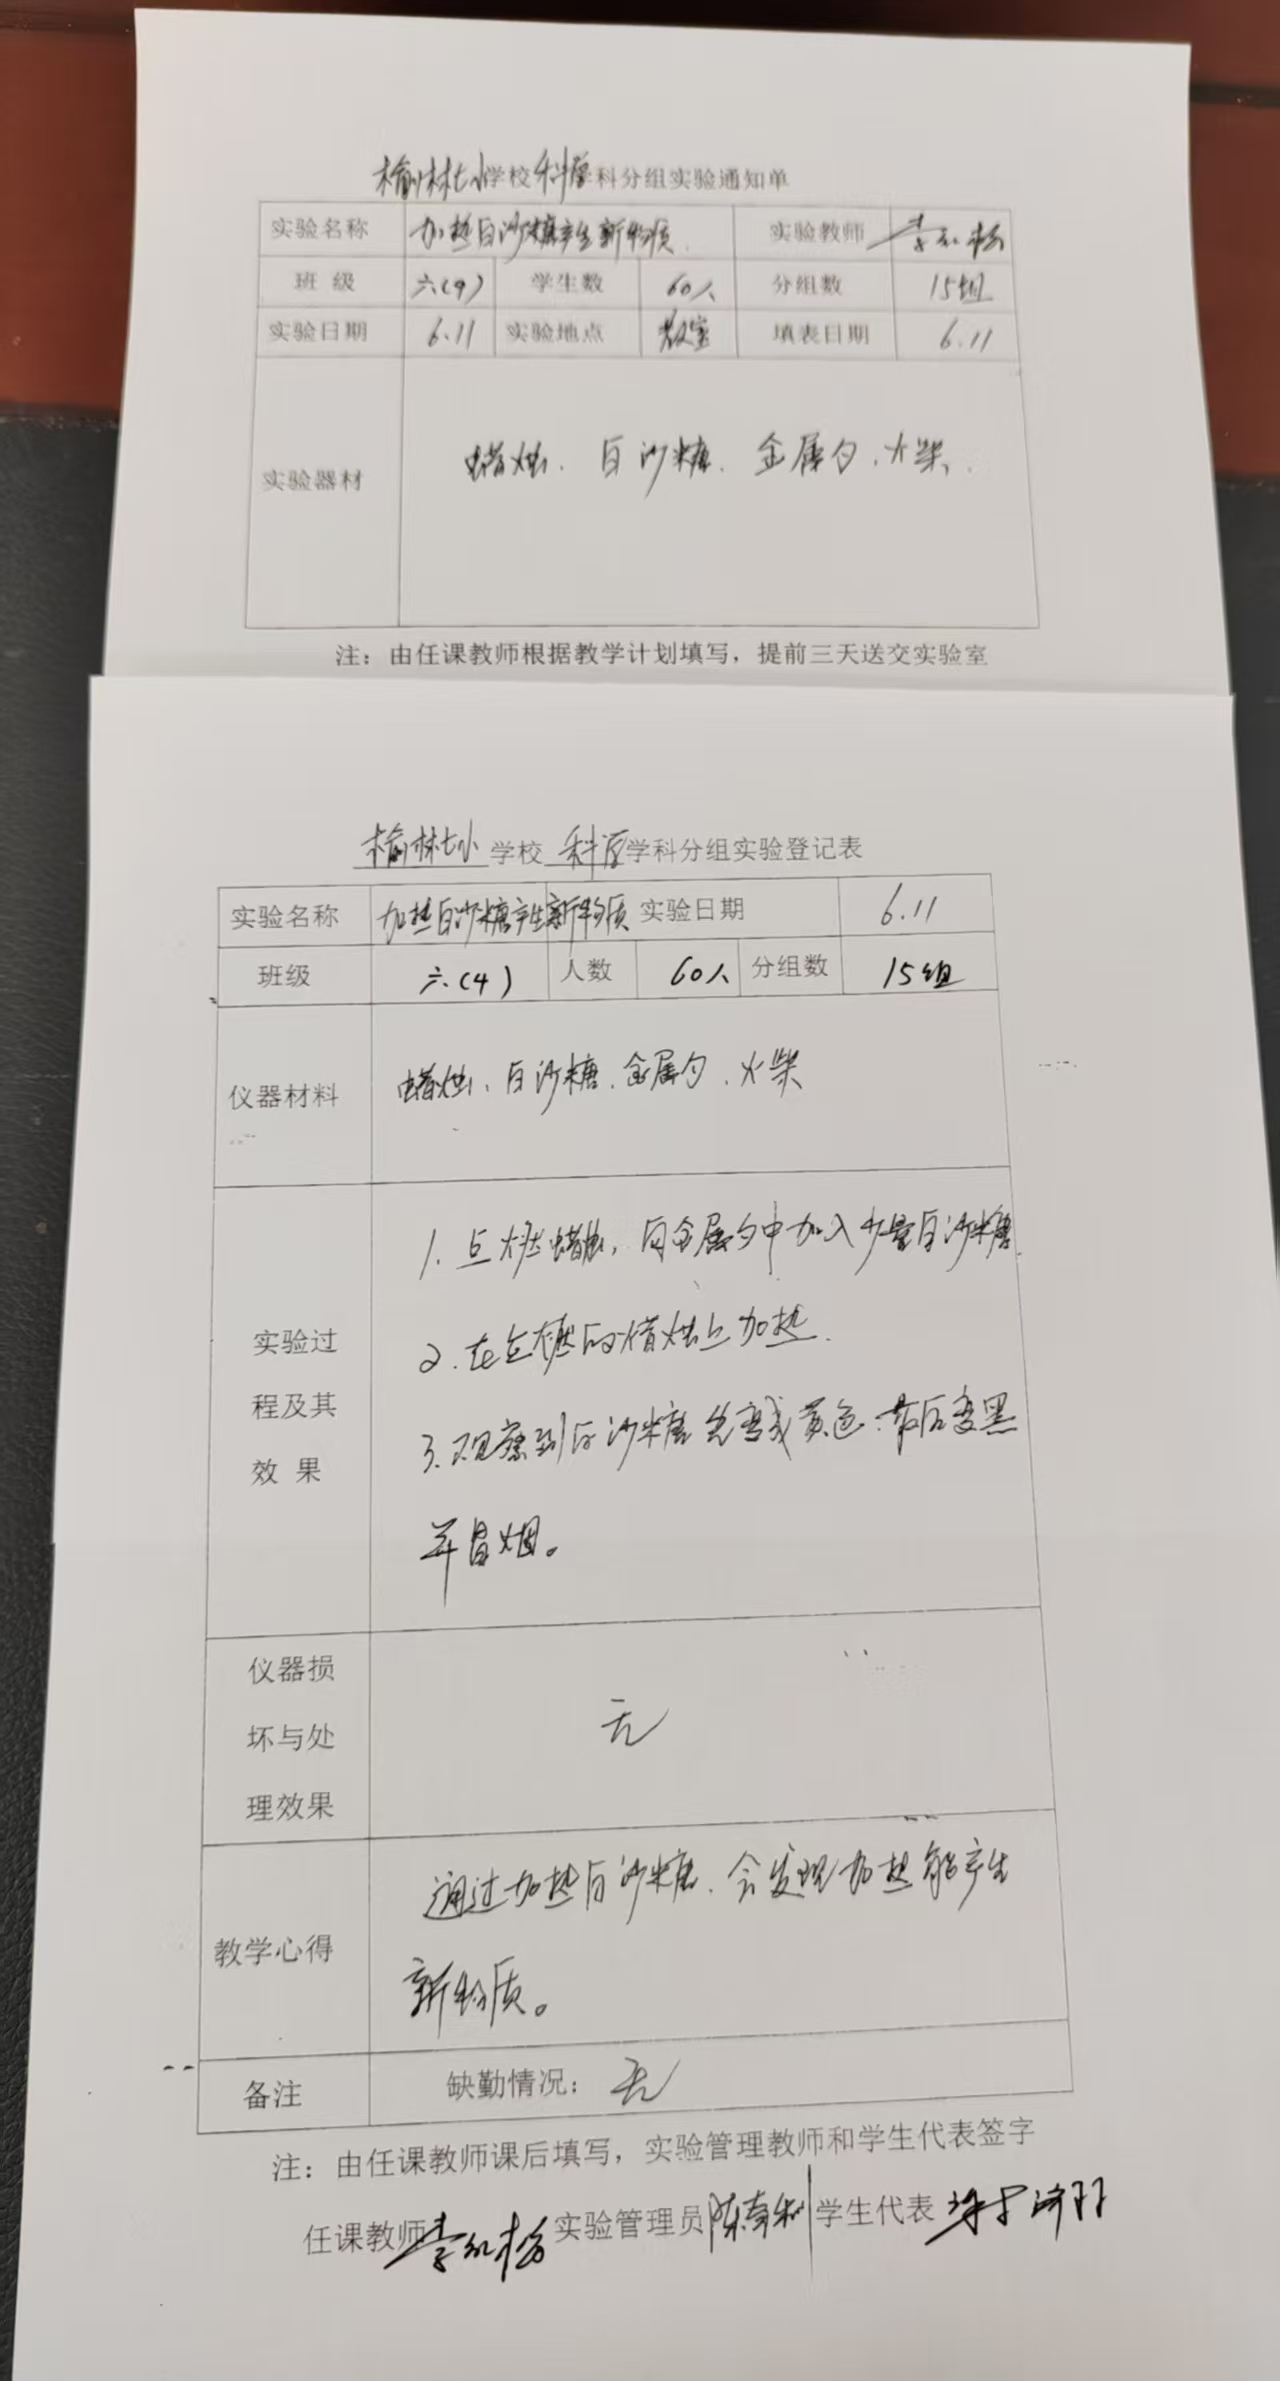 榆林七小学校科学学科分组实验通知单
实验名称 加热白沙糖产生新物质 实验教师 李红梅
班 级 六(9) 学生数 60人 分组数 15组
实验日期 6.11 实验地点 教室 填表日期 6.11
实验器材 蜡烛、白沙糖、金属勺、火柴、
注：由任课教师根据教学计划填写，提前三天送交实验室
榆林七小 学校 科学 学科分组实验登记表
实验名称 加热白沙糖产生新物质 实验日期 6.11
班级 六(4) 人数 60人 分组数 15组
仪器材料 蜡烛、白沙糖、金属勺、火柴
实验过
程及其
效 果
1. 点燃蜡烛，向金属勺中加入少量白沙糖.
2. 在点燃的蜡烛上加热.
3. 观察到白沙糖先变成黄色、最后变黑
并冒烟。
仪器损
坏与处
理效果
无
教学心得
通过加热白沙糖、会发现加热能产生
新物质。
备注 缺勤情况： 无
注：由任课教师课后填写，实验管理教师和学生代表签字
任课教师 李红梅 实验管理员 学生代表